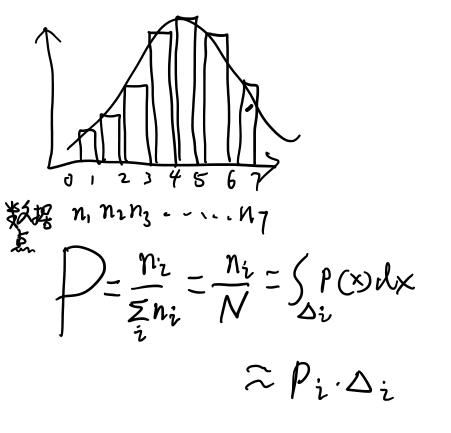 0 1 2 3 4 5 6 7
数据点 n₁ n₂ n₃ ....... n₇
P = nᵢ / ∑ᵢ nᵢ = nᵢ / N = ∫_Δᵢ P(x)dx
≈ Pᵢ · Δᵢ